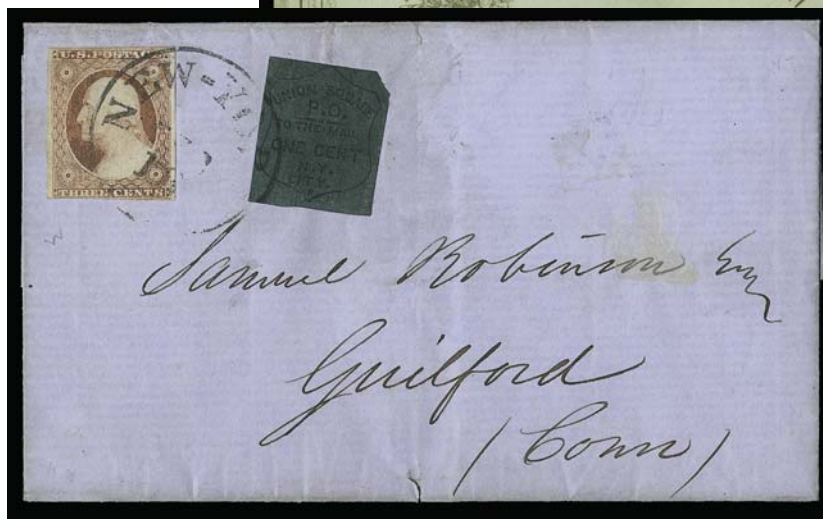 U.S. POSTAGE
THREE CENTS
NEW-YORK
UNION SQUARE
P.O.
TO THE MAIL
ONE CENT.
N.Y.
CITY.
Samuel Robinson Esq
Guilford
(Conn)